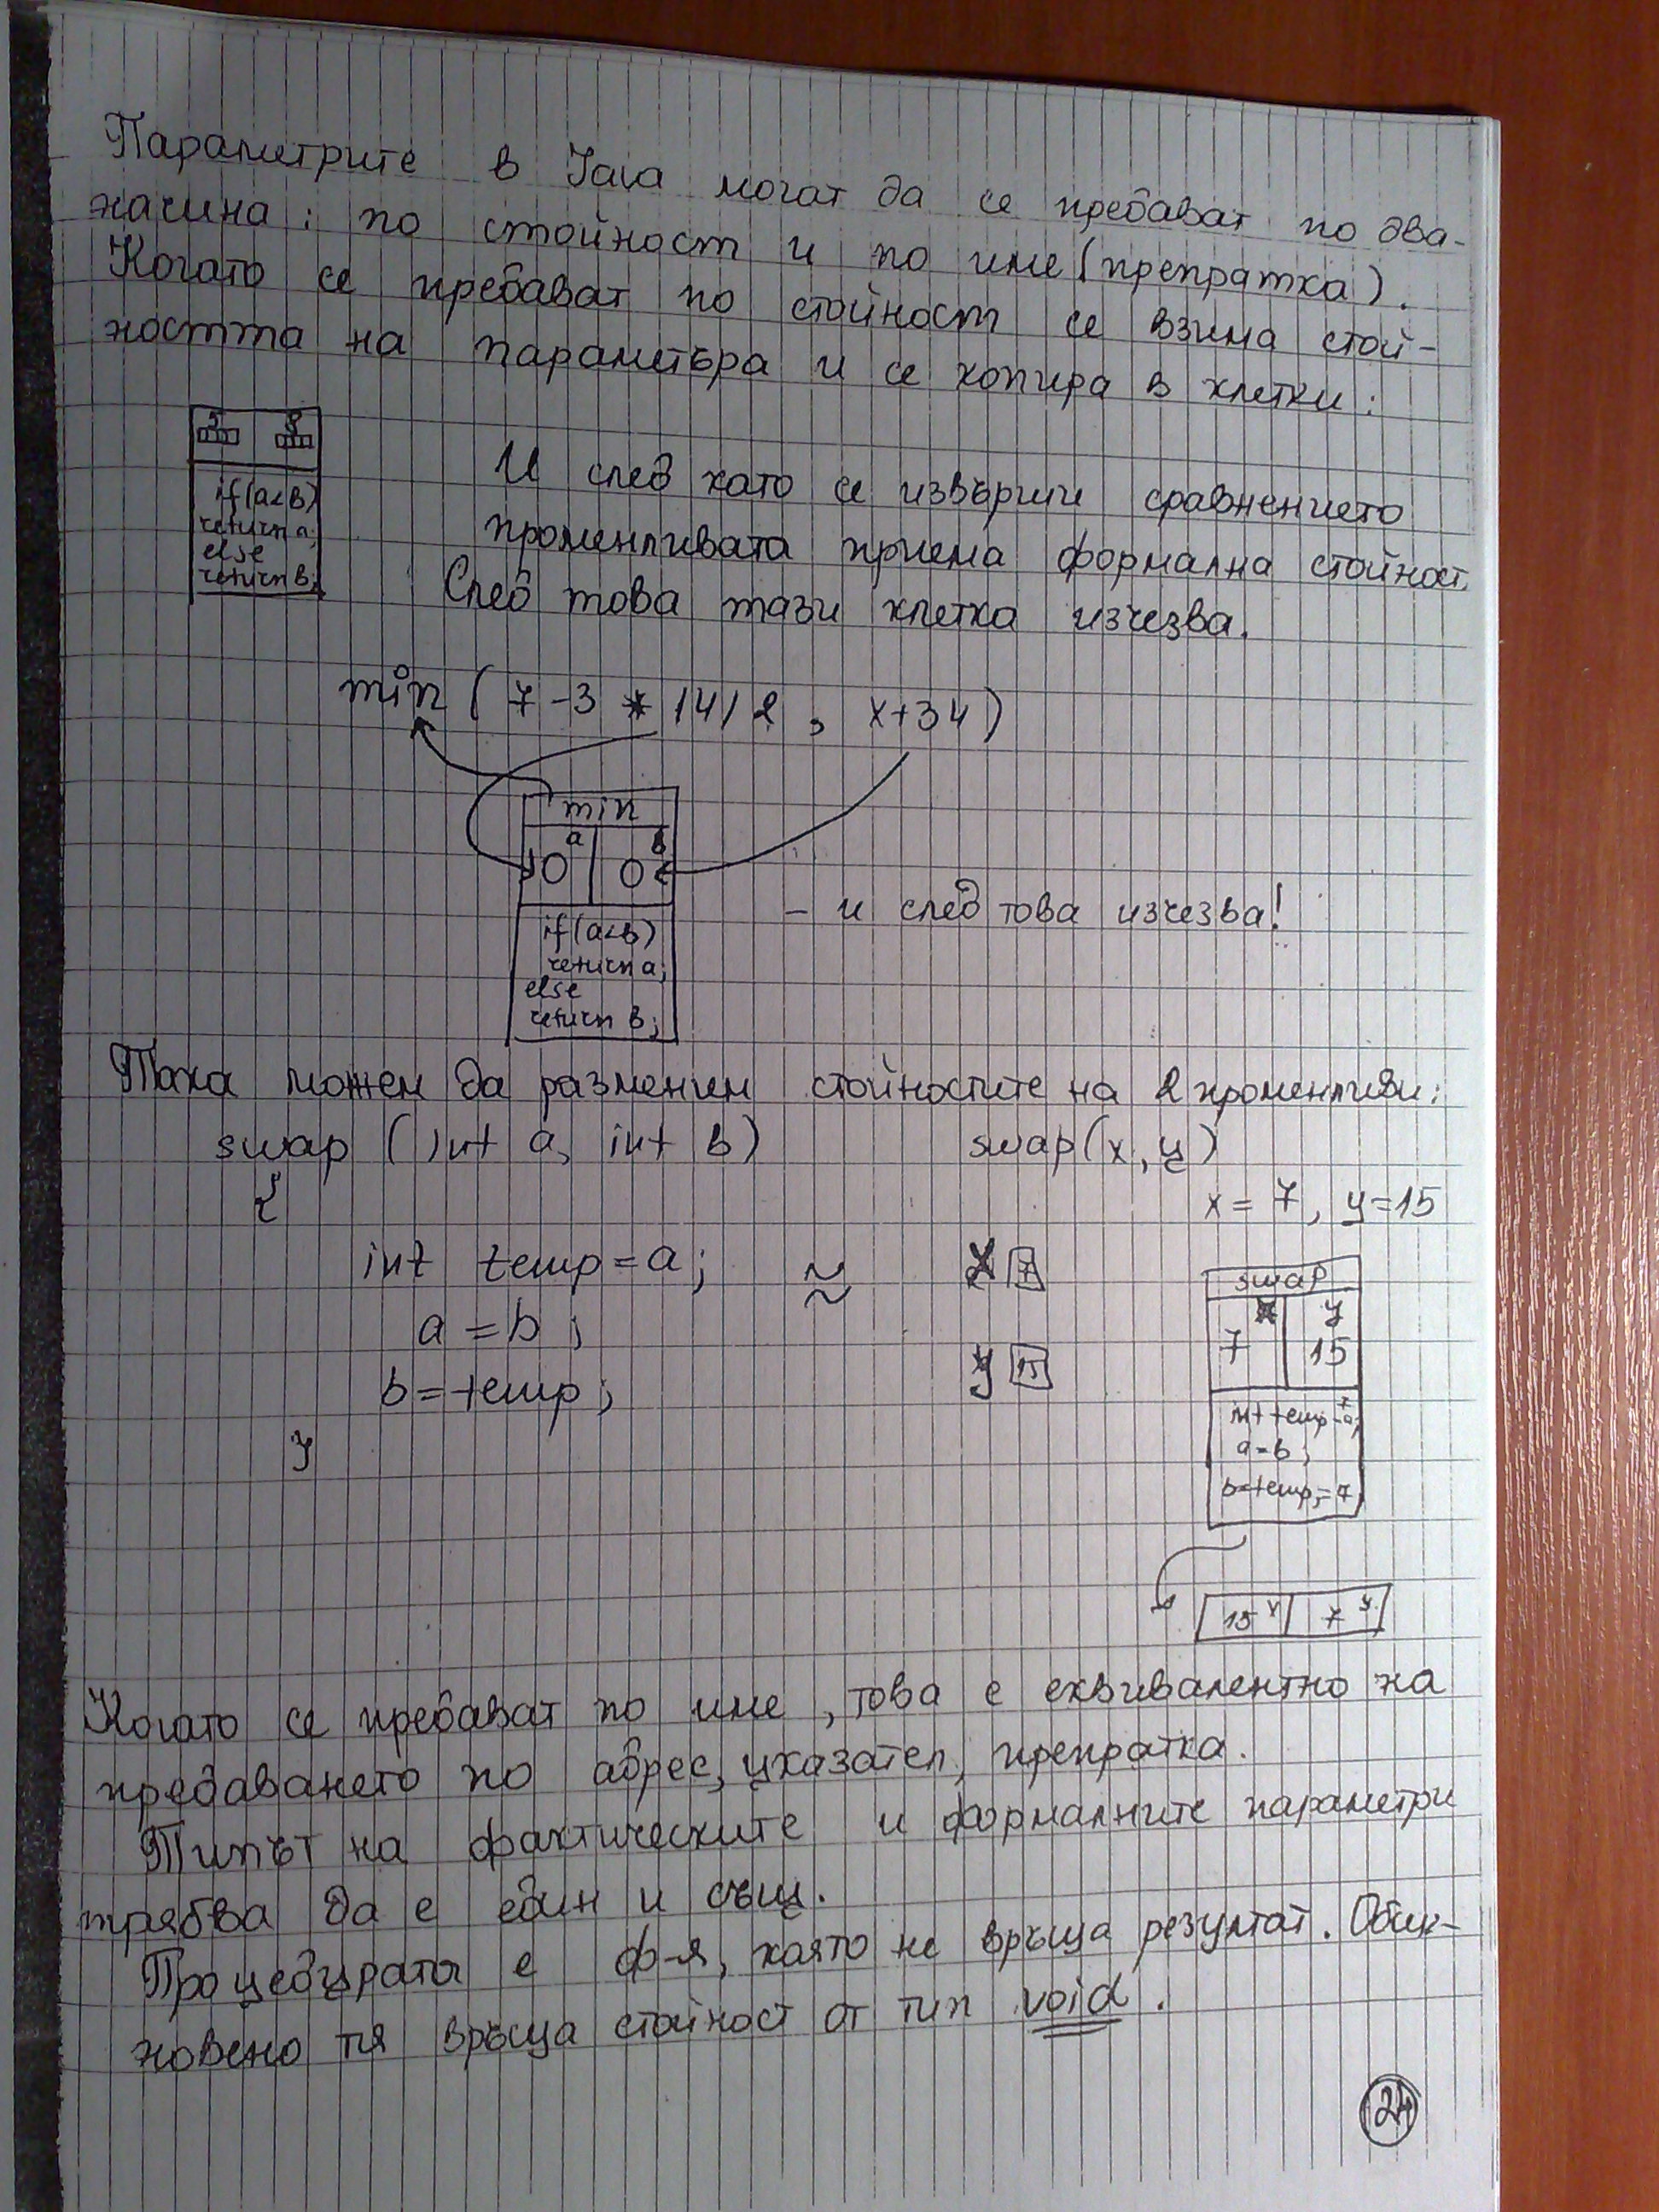 Параметрите в Java могат да се предават по два-
начина: по стойност и по име (препратка).
Когато се предават по стойност се взима стой-
ността на параметъра и се копира в клетки:
if(a<b)
return a;
else
return b;
И след като се извърши сравнението
променливата приема формална стойност.
След това тази клетка изчезва.
min ( 7-3 * 14/2 , x+34 )
min
a b
if(a<b)
return a;
else
return b;
- и след това изчезва!
Така можем да разменим стойностите на 2 променливи:
swap (int a, int b) swap(x, y)
{ x = 7, y = 15
int temp = a; ≈ x 7
a = b ;
b = temp; y 15
}
swap
y
7 15
int temp=a;
a=b;
b=temp;=7
15 7 y
Когато се предават по име, това е еквивалентно на
предаването по адрес, указател, препратка.
Типът на фактическите и формалните параметри
трябва да е един и същ.
Процедурата е ф-я, която не връща резултат. Обик-
новено тя връща стойност от тип void.
24